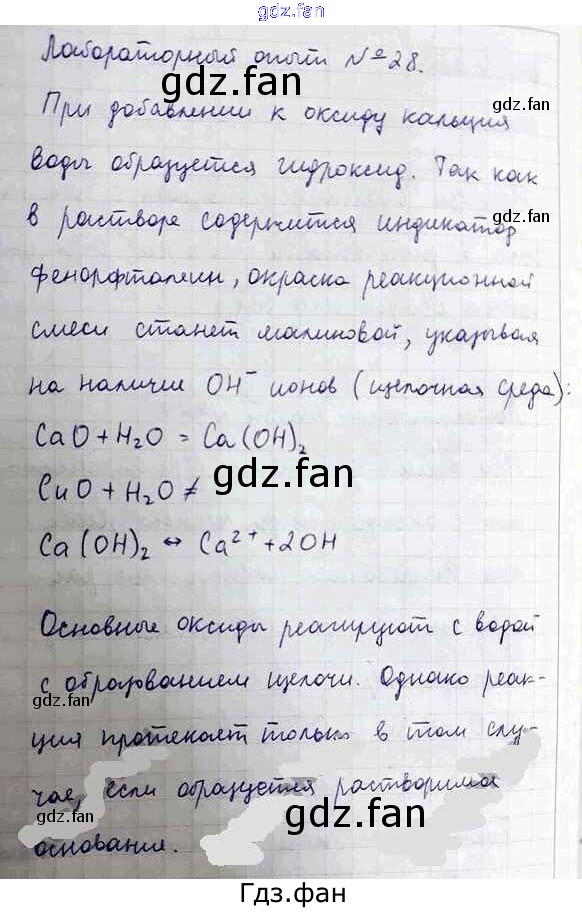 gdz.fan
Лабораторный опыт №28.
gdz.fan
При добавлении к оксиду кальция
gdz.fan
воды образуется гидроксид. Так как
gdz.fan
в растворе содержится индикатор
gdz.fan
фенолфталеин, окраска реакционной
смеси станет малиновой, указывая
на наличие OH⁻ ионов (щелочная среда):
CaO + H₂O = Ca(OH)₂
gdz.fan
CuO + H₂O ≠
Ca(OH)₂ ↔ Ca²⁺ + 2OH
Основные оксиды реагируют с водой
с образованием щелочи. Однако реак-
gdz.fan
ция протекает только в том слу-
чае, если образуется растворимое
gdz.fan
gdz.fan
основание.
Гдз.фан